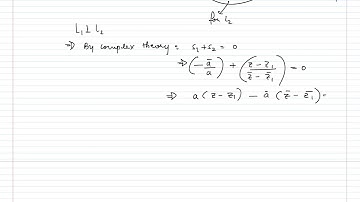 for L₂
L₁ ⊥ L₂
⇒ By complex theory : s₁ + s₂ = 0
⇒ (-ā/a) + ((z - z₁)/(z̄ - z̄₁)) = 0
⇒ a(z - z₁) - ā(z̄ - z̄₁) =